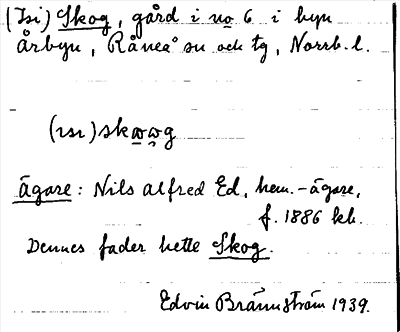 (Isi) Skog, gård i no 6 i byn
Årbyn, Råneå sn och tg, Norrb. l.
(ısı) skωωg
Ägare: Nils Alfred Ed, hem.-ägare,
f. 1886 kb.
Dennes fader hette Skog.
Edvin Brännström 1939.